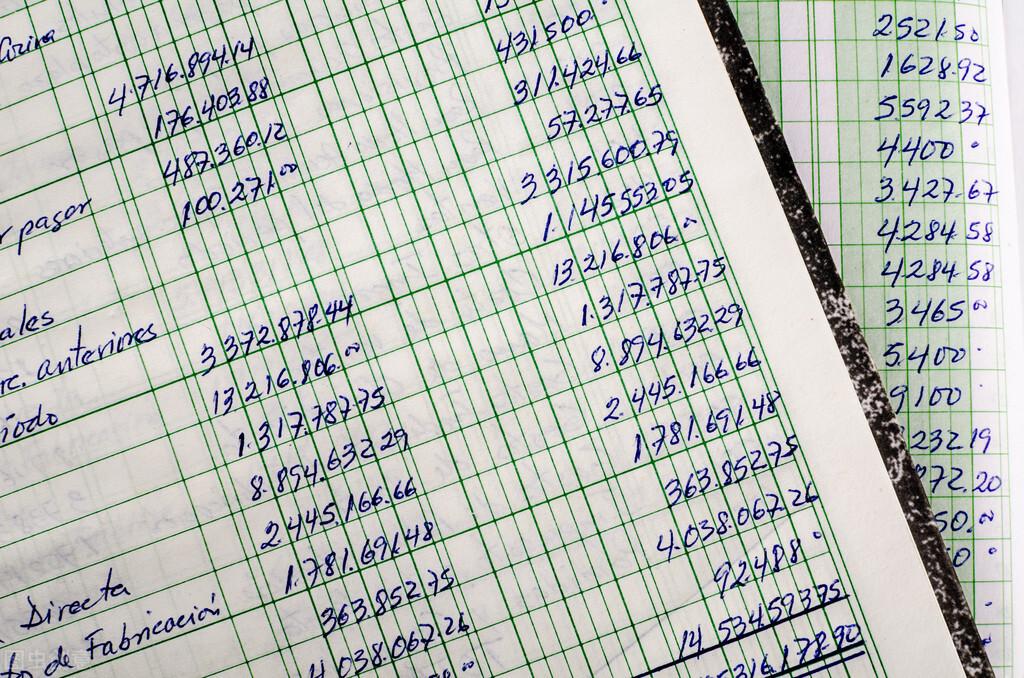 4.716.894.14
176.403.88
487.360.12
r pagar
100.271.00
ales
rc. anteriores
3 372.878.44
íodo
13 216.806.00
1.317.787.75
8.854.632 29
2.445.166.66
Directa
1.781.691.48
de Fabricación
363.852.75
4 038.067.26
431.500.
311.424.66
57.277.65
3 315 600.79
1.145 553 05
13 216.806.00
1.317.787.75
8.894.632.29
2.445.166 66
1 781.691.48
363.852 75
4.038.067.26
92.488
14 534.459 3 75
5 316.178.90
2521.50
1628.92
5592 37
4400
3.427.67
4.284 58
4284.58
3 465 00
5.400
9100
232 19
72.20
50.00
0